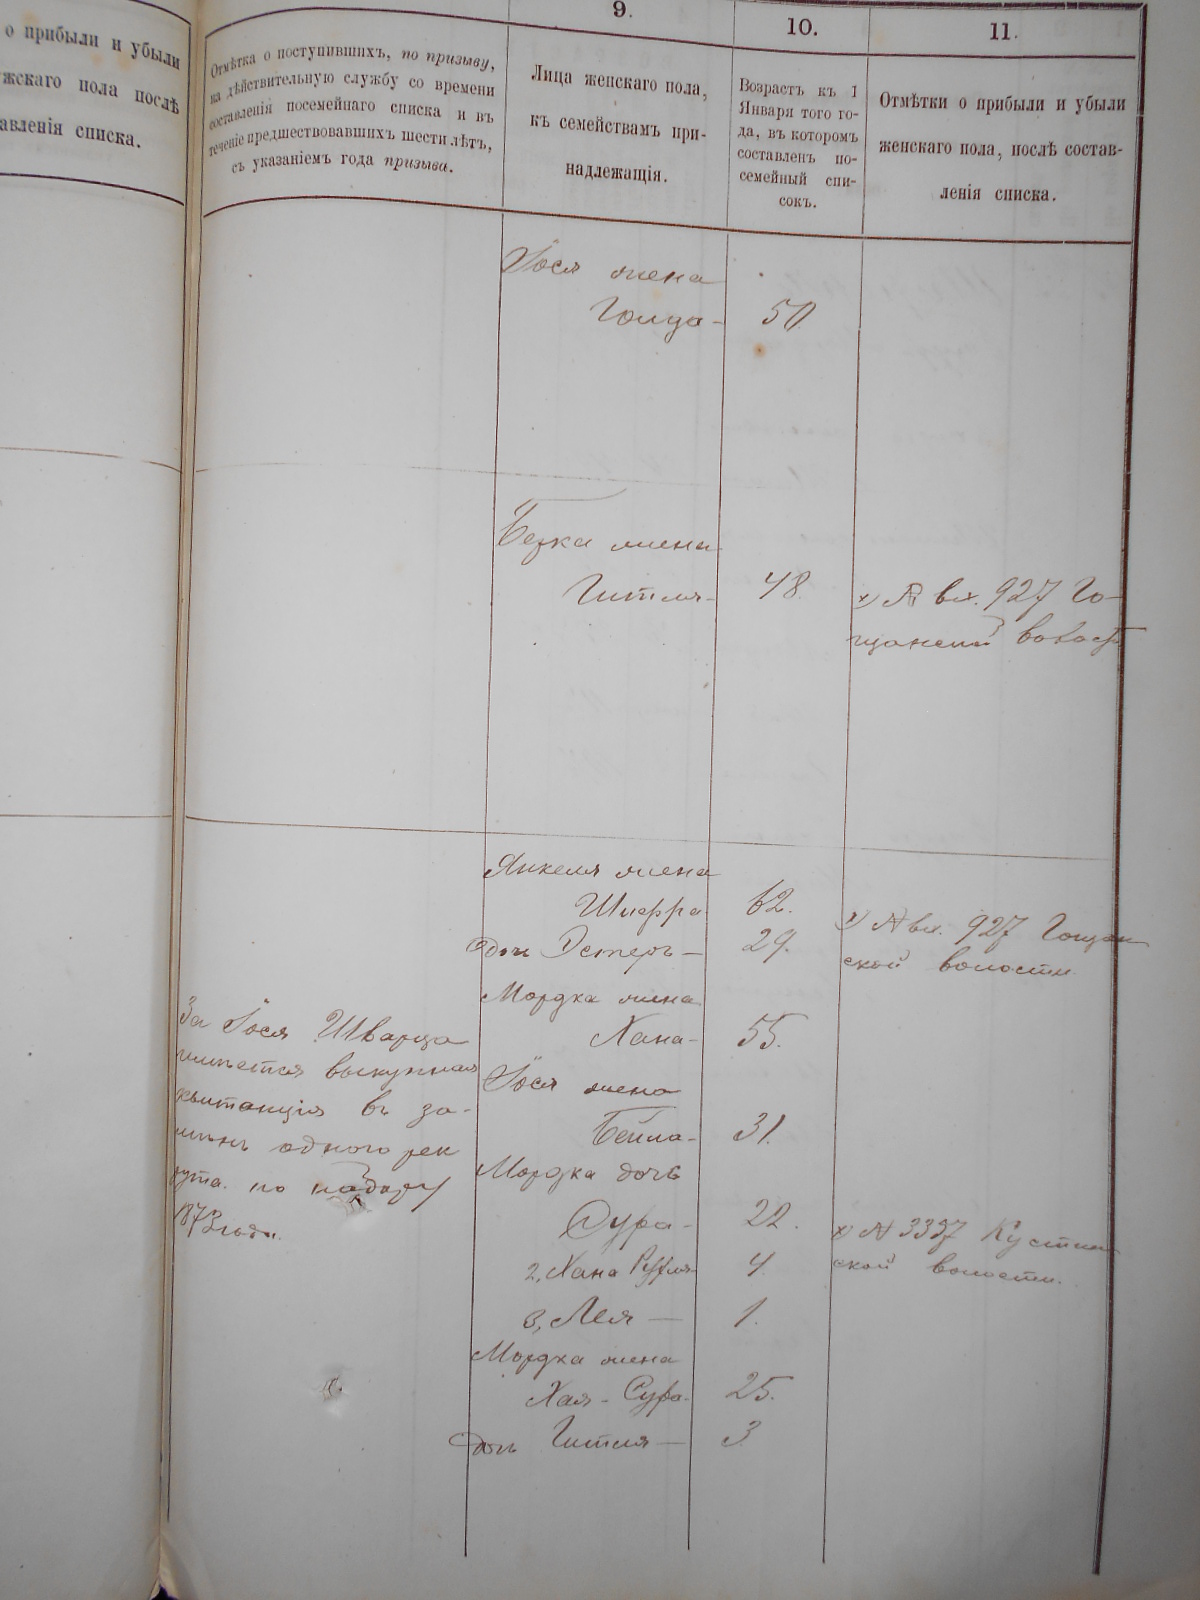 о прибыли и убыли
жскаго пола послѣ
авленія списка.
Отмѣтка о поступившихъ, по призыву,
на дѣйствительную службу со времени
составленія посемейнаго списка и въ
теченіе предшествовавшихъ шести лѣтъ,
съ указаніемъ года призыва.
9.
Лица женскаго пола,
къ семействамъ при-
надлежащія.
10.
Возрастъ къ 1
Января того го-
да, въ которомъ
составленъ по-
семейный спи-
сокъ.
11.
Отмѣтки о прибыли и убыли
женскаго пола, послѣ состав-
ленія списка.
Іося жена
Голда- 50.
Берка жена
Гитля- 48.
х) № вх. 927 Го-
щанской волост
Янкеля жена
Шифра 62.
дочь Эстеръ— 29.
х) № вх. 927 Гощан
ской волости
Мордка жена
Хана- 55.
Іося жена
Бейла- 31.
Мордка дочь
Сура- 22.
2, Хана 4.
3, Лея — 1.
х) № 3337
ской волости.
Мордка жена
Хая-Сура 25.
дочь Гитля — 3
За Іося Шварца
имѣется выкупная
квитанція въ за-
мѣнъ одного рек
рута по набору
1873 года.